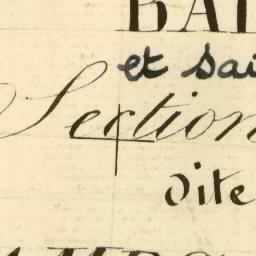 BAI
et Sai
Section
Dite